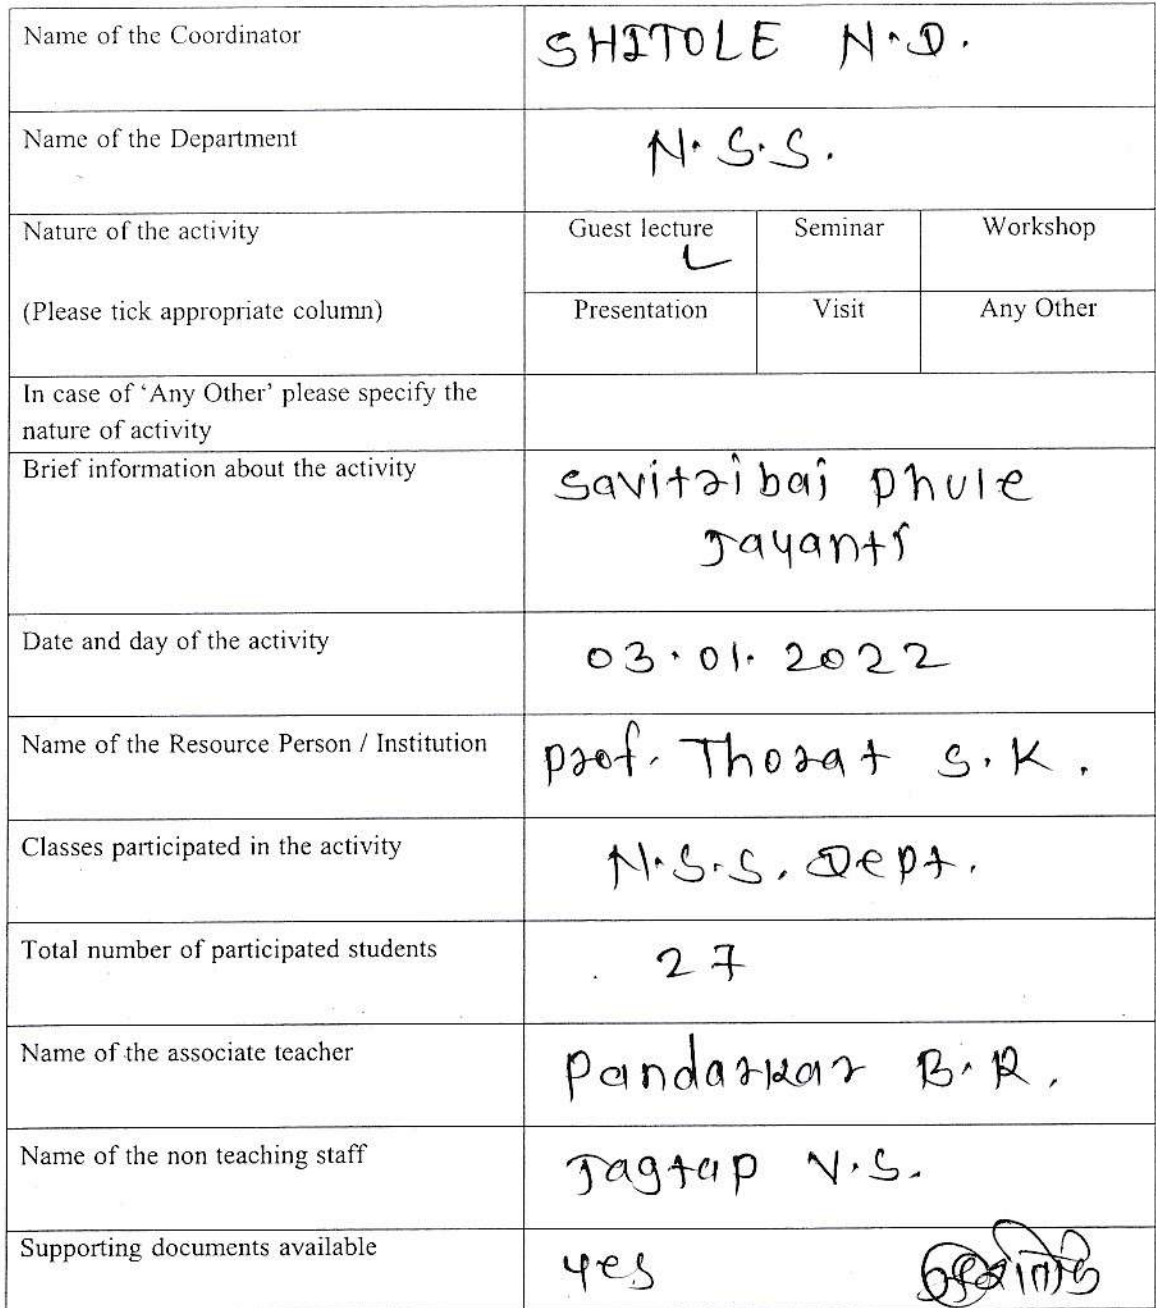 Name of the Coordinator
SHITOLE N.D.
Name of the Department
N.S.S.
Nature of the activity
Guest lecture
Seminar
Workshop
(Please tick appropriate column)
Presentation
Visit
Any Other
In case of 'Any Other' please specify the
nature of activity
Brief information about the activity
Savitribai Phule
Jayanti
Date and day of the activity
03.01.2022
Name of the Resource Person / Institution
Prof. Thorat S.K.
Classes participated in the activity
N.S.S. Dept.
Total number of participated students
27
Name of the associate teacher
Pandarkar B.R.
Name of the non teaching staff
Jagtap V.S.
Supporting documents available
yes